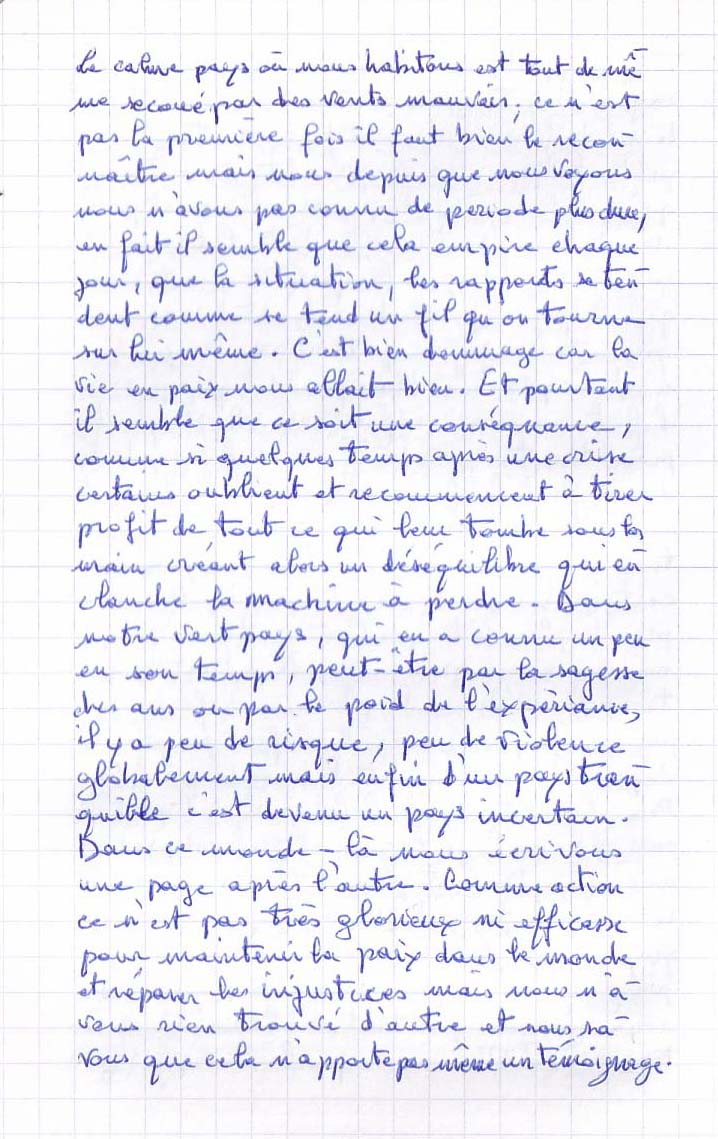 Le calme pays où nous habitons est tout de mê
me secoué par des vents mauvais, ce n'est
pas la première fois il faut bien le recon-
naître mais nous depuis que nous voyons
nous n'avons pas connu de periode plus dure,
en fait il semble que cela empire chaque
jour, que la situation, les rapports se ten-
dent comme se tend un fil qu on tourne
sur lui même. C'est bien dommage car la
vie en paix nous allait bien. Et pourtant
il semble que ce soit une conséquance,
comme si quelques temps après une crise
certains oublient et recommencent à tirer
profit de tout ce qui leur tombe sous la
main créant alors un déséquilibre qui en-
clanche la machine à perdre. Dans
notre vert pays, qui en a connu un peu
en son temps, peut-être par la sagesse
des ans ou par le poid de l'expériance,
il y a peu de risque, peu de violence
globalement mais enfin d'un pays tran-
quille c'est devenu un pays incertain.
Dans ce monde-là nous écrivons
une page après l'autre. Comme action
ce n'est pas très glorieux ni efficasse
pour maintenir la paix dans le monde
et réparer les injustices mais nous n'a-
vons rien trouvé d'autre et nous sa-
vons que cela n'apporte pas même un témoignage.